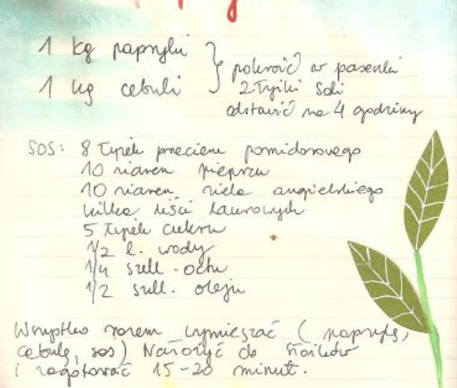 1 kg papryki
1 kg cebuli
pokroić w paseczki
2 łyżki soli
odstawić na 4 godziny
SOS: 8 łyżek przecieru pomidorowego
10 ziaren pieprzu
10 ziaren ziela angielskiego
kilka liści laurowych
5 łyżek cukru
1/2 l. wody
1/4 szkl. octu
1/2 szkl. oleju
Wszystko razem wymieszać (paprykę,
cebulę, sos) Nałożyć do słoików
i zagotować 15-20 minut.